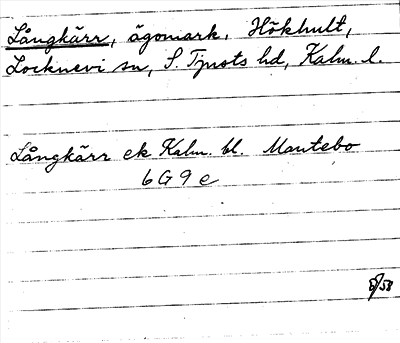 Långkärr, ägomark, Hökhult,
Locknevi sn, S. Tjusts hd, Kalm. l.
Långkärr ek Kalm. bl. Mantebo
6G9e